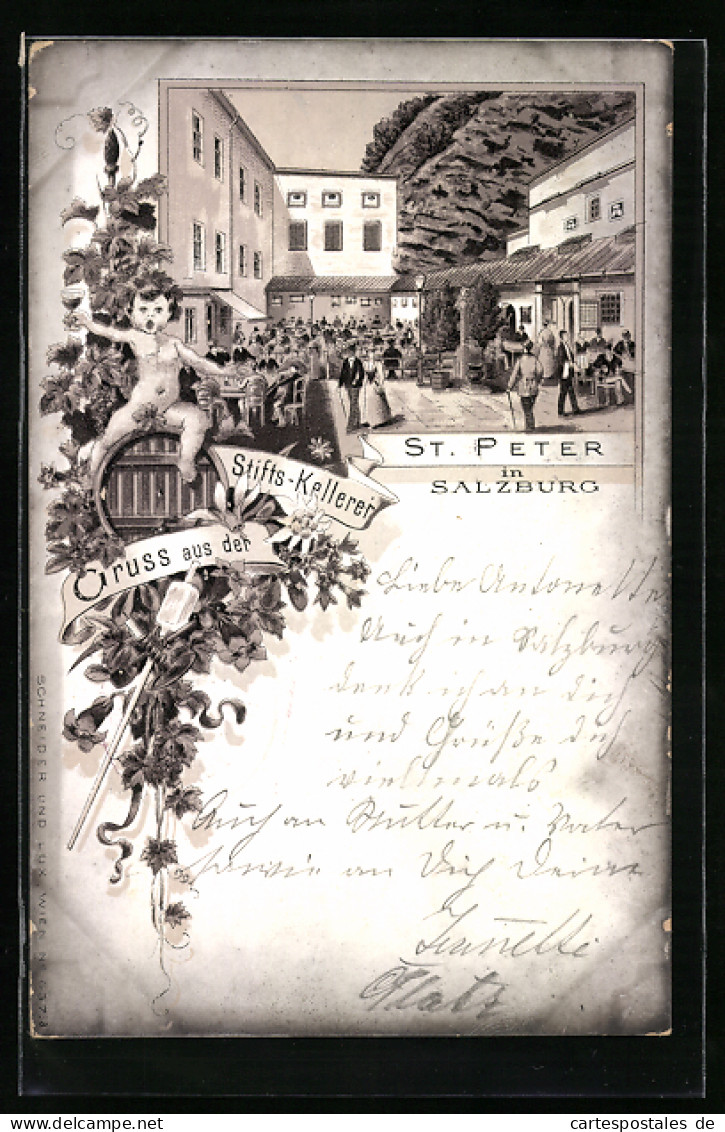 ST. PETER
in
SALZBURG
Stifts-Kellerei
Gruss aus der
Liebe Antonette
Auch in Salzburg
denk ich an dich
und Grüße dich
vielmals
Auch an Mutter u. Vater
sowie an Dich Deine
Jeanette
Platz
SCHNEIDER UND LUX, WIEN
cartespostales de
cartespostales.de